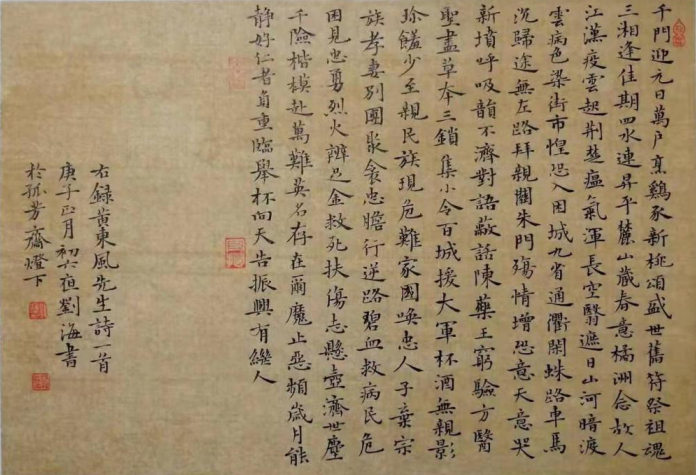 千門迎元日萬户烹鷄豕新桃頌盛世舊符祭祖魂
三湘逢佳期四水連昇平麓山藏春意橘洲念故人
江漢疫雲起荆楚瘟氣渾長空翳遮日山河暗渡
雲病色染街市惶恐入困城九省通衢閑蛛路車馬
沉歸途無左路拜親闔朱門殤情增恐意天意哭
新墳呼吸韻不濟對語敲話陳藥王窮驗方醫
聖盡草本三鎖集小令百城援大軍杯酒無親影
珍饈少至親民族現危難家國喚忠人子棄宗
族孝妻别團聚食忠膽行逆路碧血救病民危
困見忠勇烈火辨足金救死扶傷志懸壺濟世塵
千險楷模赴萬難英名存在爾魔止惡頻歲月能
静好仁者負重臨舉杯向天告振興有繼人
右録黄東風先生詩一首
庚子正月初六恒劉海書
於孤芳齋燈下